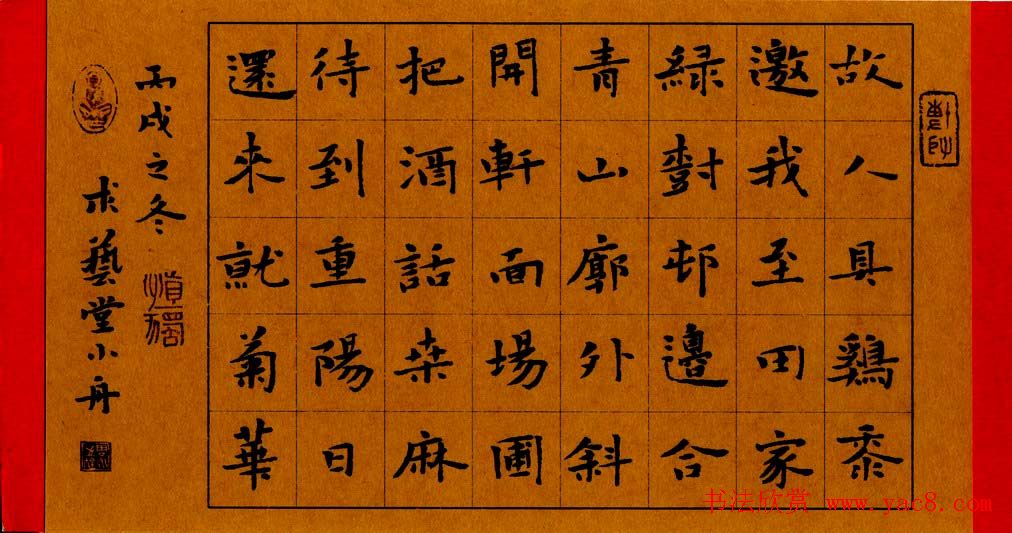 故人具鷄黍
邀我至田家
緑樹邨邊合
青山廓外斜
開軒面場圃
把酒話桒麻
待到重陽日
還來就菊華
丙戌之冬
慎獨
求藝堂小舟
书法欣赏 www.yac8.com